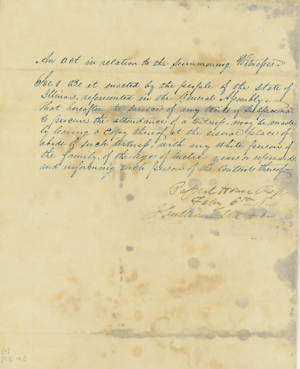 An act in relation to the summoning Witnesses.
Sec 1 Be it enacted by the people of the state of
Illinois, represented in the General Assembly
that hereafter the service of any writ of subpoena
to procure the attendance of a witness may be made
by leaving a copy thereof, at the usual place of
abode of such witness, with any white person of
the family, of the age of twelve years or upwards
and informing such person of the contents thereof
Passed House Reps
Feby 6th